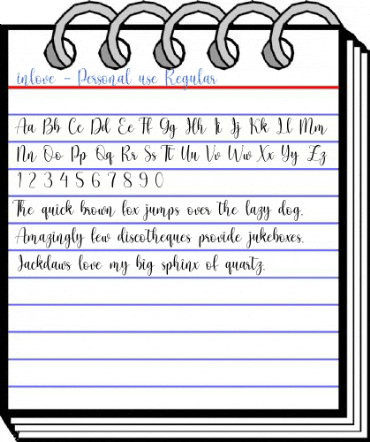 inlove - Personal use Regular
Aa Bb Cc Dd Ee Ff Gg Hh Ii Jj Kk Ll Mm
Nn Oo Pp Qq Rr Ss Tt Uu Vv Ww Xx Yy Zz
1 2 3 4 5 6 7 8 9 0
The quick brown fox jumps over the lazy dog.
Amazingly few discotheques provide jukeboxes.
Jackdaws love my big sphinx of quartz.